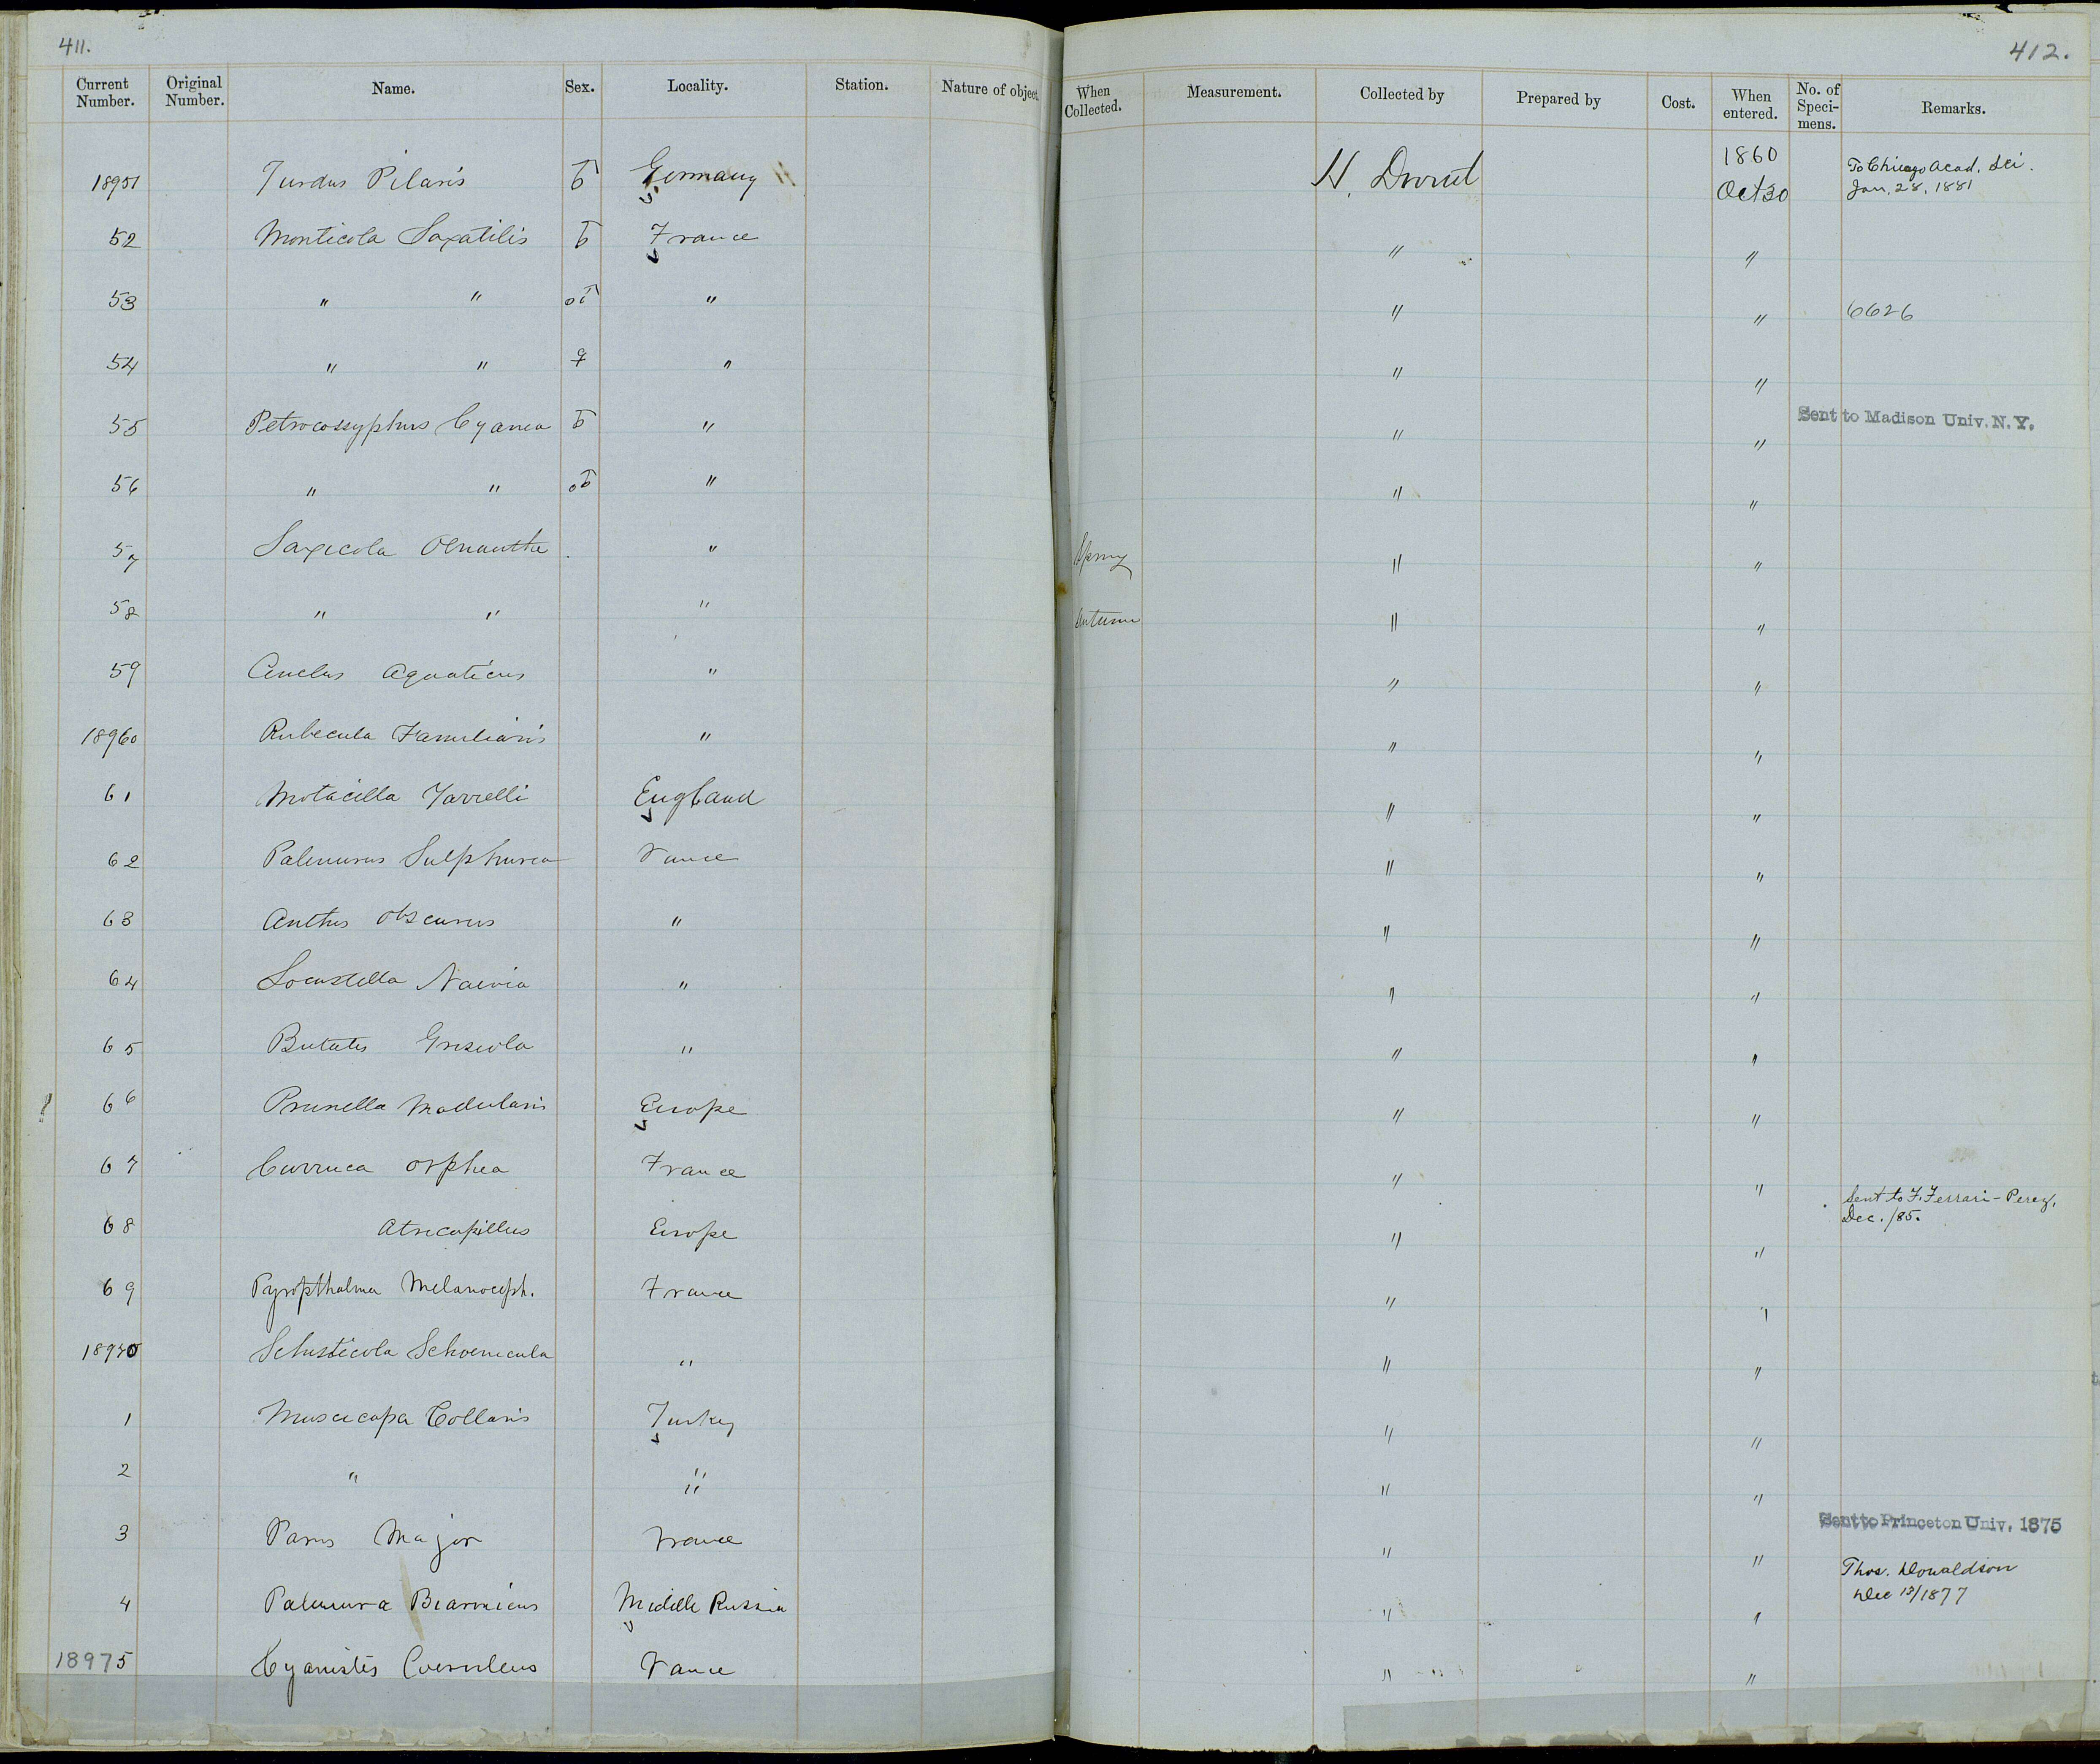 411.
412.
Current Number. Original Number. Name. Sex. Locality. Station. Nature of object. When Collected. Measurement. Collected by Prepared by Cost. When entered. No. of Speci-mens. Remarks.
18951 Turdus Pilaris ♂ Germany H. 1860 Oct 30 To Chicago Acad. Sci. Jan. 28, 1881
52 Monticola Saxatilis ♂ France " "
53 " " " " " 6626
54 " " ♀ " " "
55 Petrocossyphus Cyanea ♂ " " " Sent to Madison Univ. N.Y.
56 " " " " "
57 Saxicola Oenanthe " Spring " "
58 " " " Autumn " "
59 Cinclus Aquaticus " " "
18960 Rubecula Familiaris " " "
61 Motacilla Yarrelli England " "
62 Sulphurea France " "
63 Anthus Obscurus " " "
64 Locustella Naevia " " "
65 Butalis Grisola " " "
66 Prunella Modularis Europe " "
67 Curruca Orphea France " "
68 Atricapillus Europe " " Sent to F. Ferrari-Perez, Dec. /85.
69 Pyropthalma Melanoceph. France " "
18970 Schoenicula " " "
1 Muscicapa Collaris Turkey " "
2 " " " "
3 Parus Major France " " Sent to Princeton Univ. 1875
4 Biarmicus Middle Russia " " Thos. Donaldson Dec 12/1877
18975 Cyanistes Coeruleus France " "